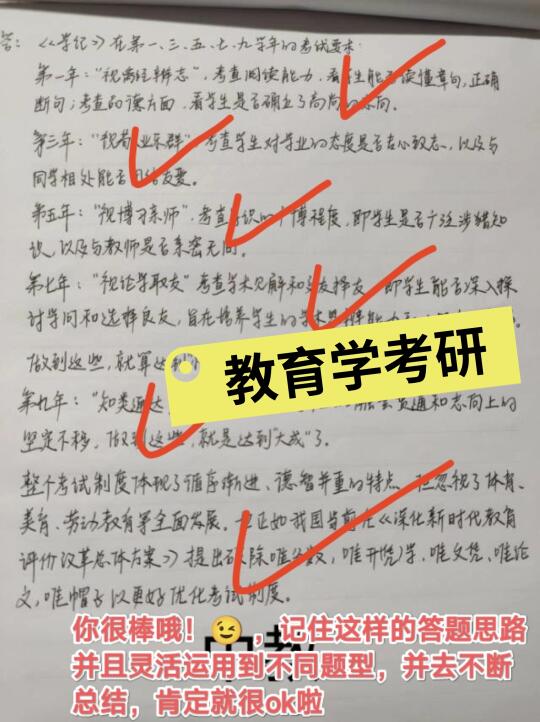 答：《学记》在第一、三、五、七、九学年的考试要求：
第一年："视离经辨志"，考查阅读能力，看学生能否读懂章句，正确
断句；考查品德方面，看学生是否确立了高尚的志向。
第三年："视敬业乐群"考查学生对学业的态度是否专心致志，以及与
同学相处能否团结友爱。
第五年："视博习亲师"，考查学识的广博程度，即学生是否广泛涉猎知
识，以及与教师是否亲密无间。
第七年："视论学取友"考查学术见解和交友择友，即学生能否深入探
讨学问和选择良友，旨在培养学生的学术
做到这些，就算达到
教育学考研
第九年："知类通达，
融会贯通和志向上的
坚定不移，做到这些，就是达到"大成"了。
整个考试制度体现了循序渐进、德智并重的特点，但忽视了体育、
美育、劳动教育等全面发展。正如我国当前在《深化新时代教育
评价改革总体方案》提出破除唯分数，唯升学，唯文凭、唯论
文，唯帽子以更好优化考试制度。
你很棒哦！😉，记住这样的答题思路
并且灵活运用到不同题型，并去不断
总结，肯定就很ok啦